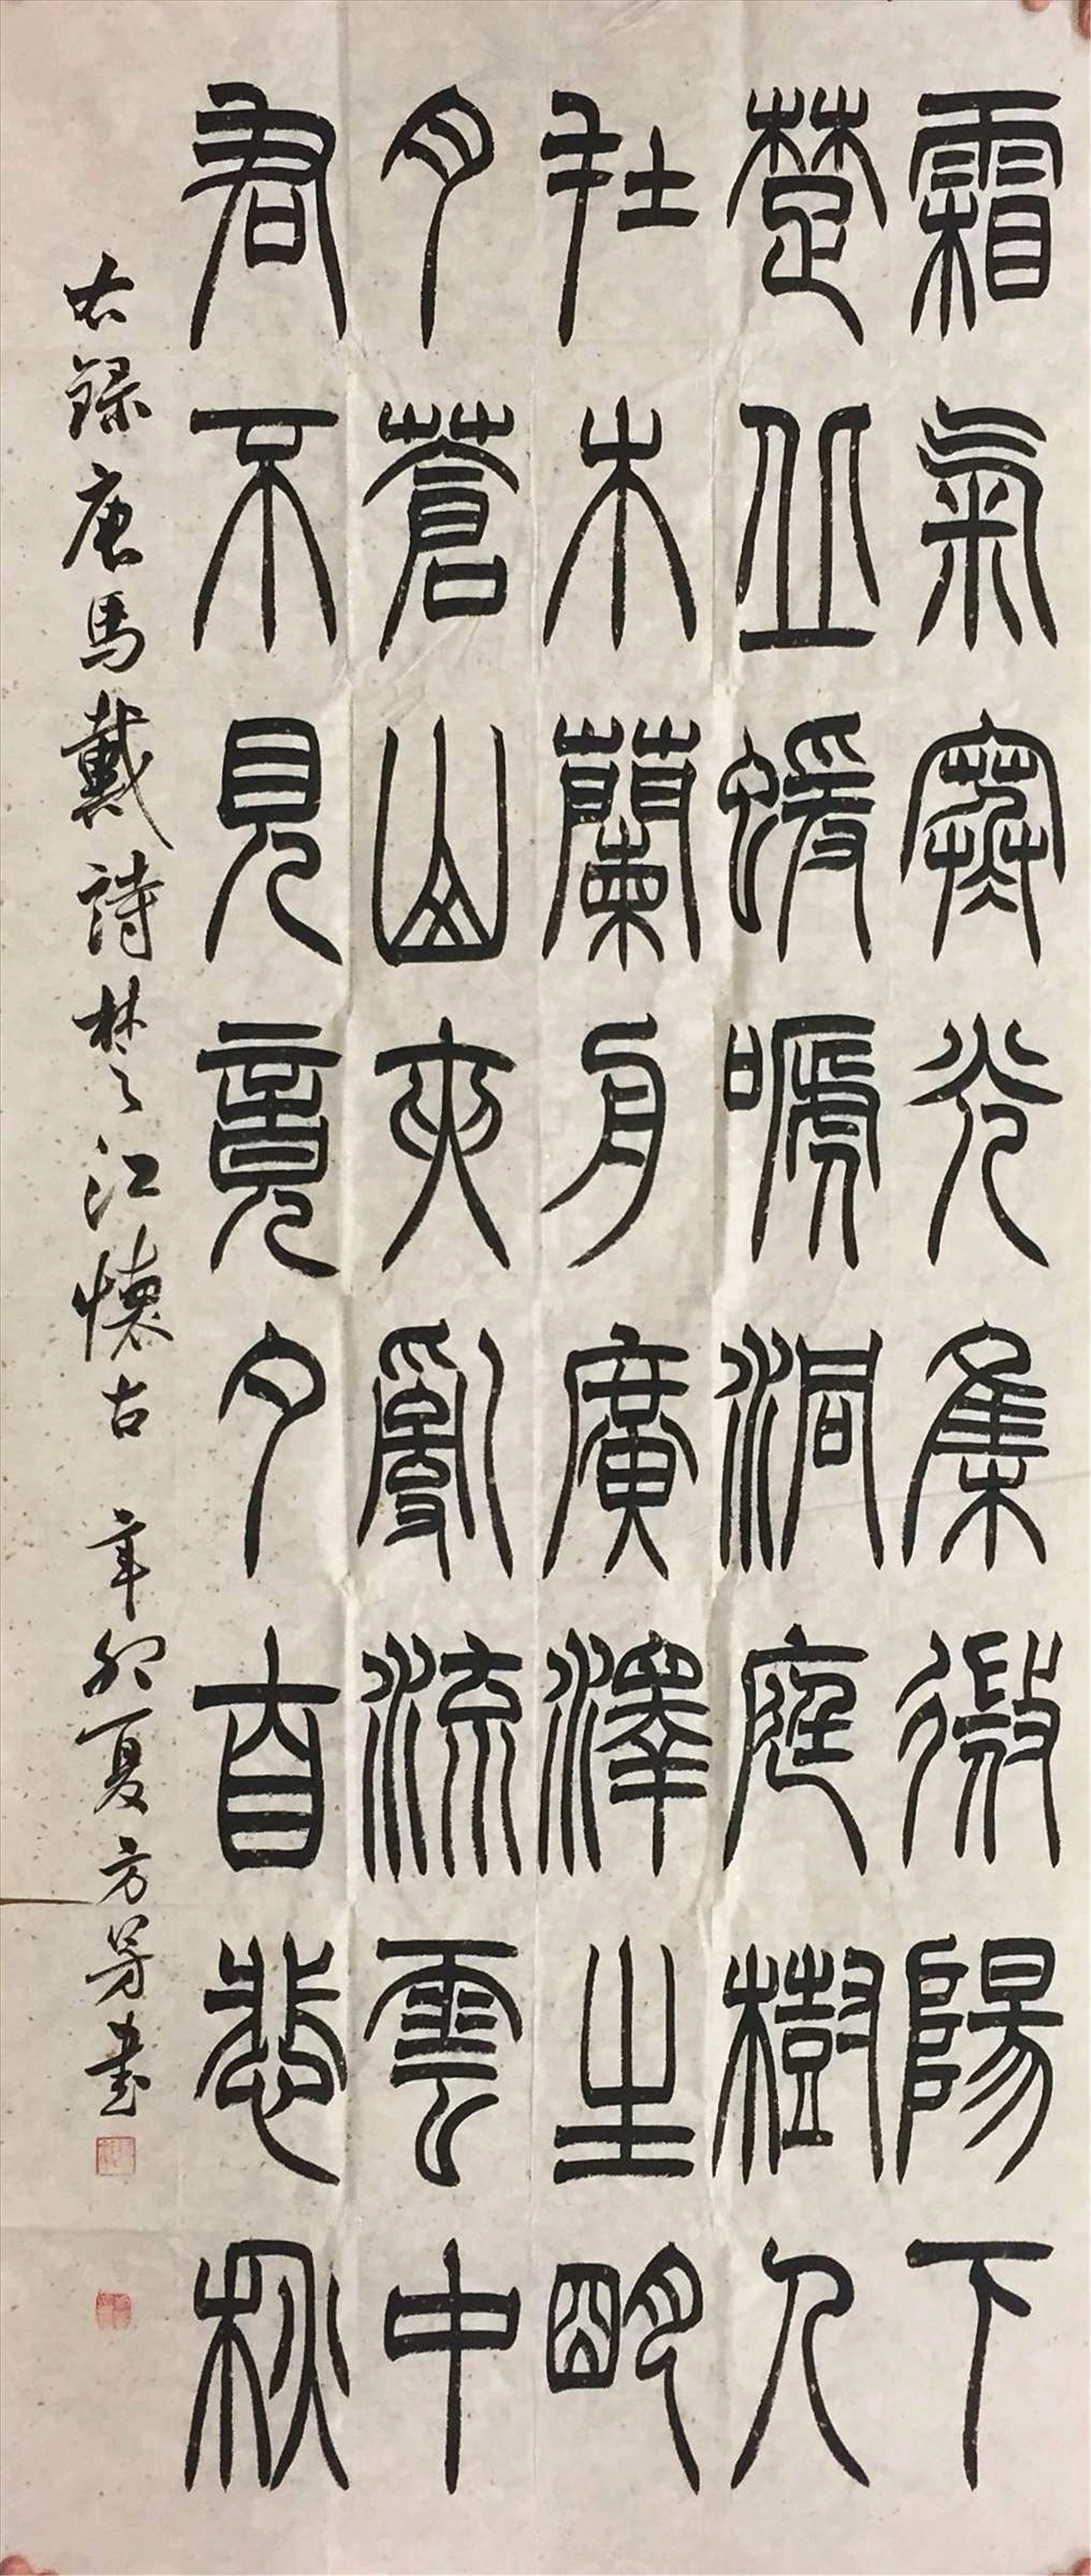 霜氣寒光集微陽下
楚丘蝯嗁洞庭樹人
在木蘭舟廣澤生朙
月蒼山夾亂流雲中
君不見竟夕自悲秋
右錄唐馬戴詩楚江懷古 辛卯夏方芳書